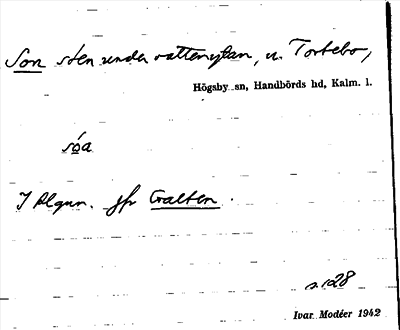 Son sten under vattenytan, n. Torbebo,
Högsby sn, Handbörds hd, Kalm. l.
sóa
I Algun. jfr Galten.
s. 128
Ivar Modéer 1942